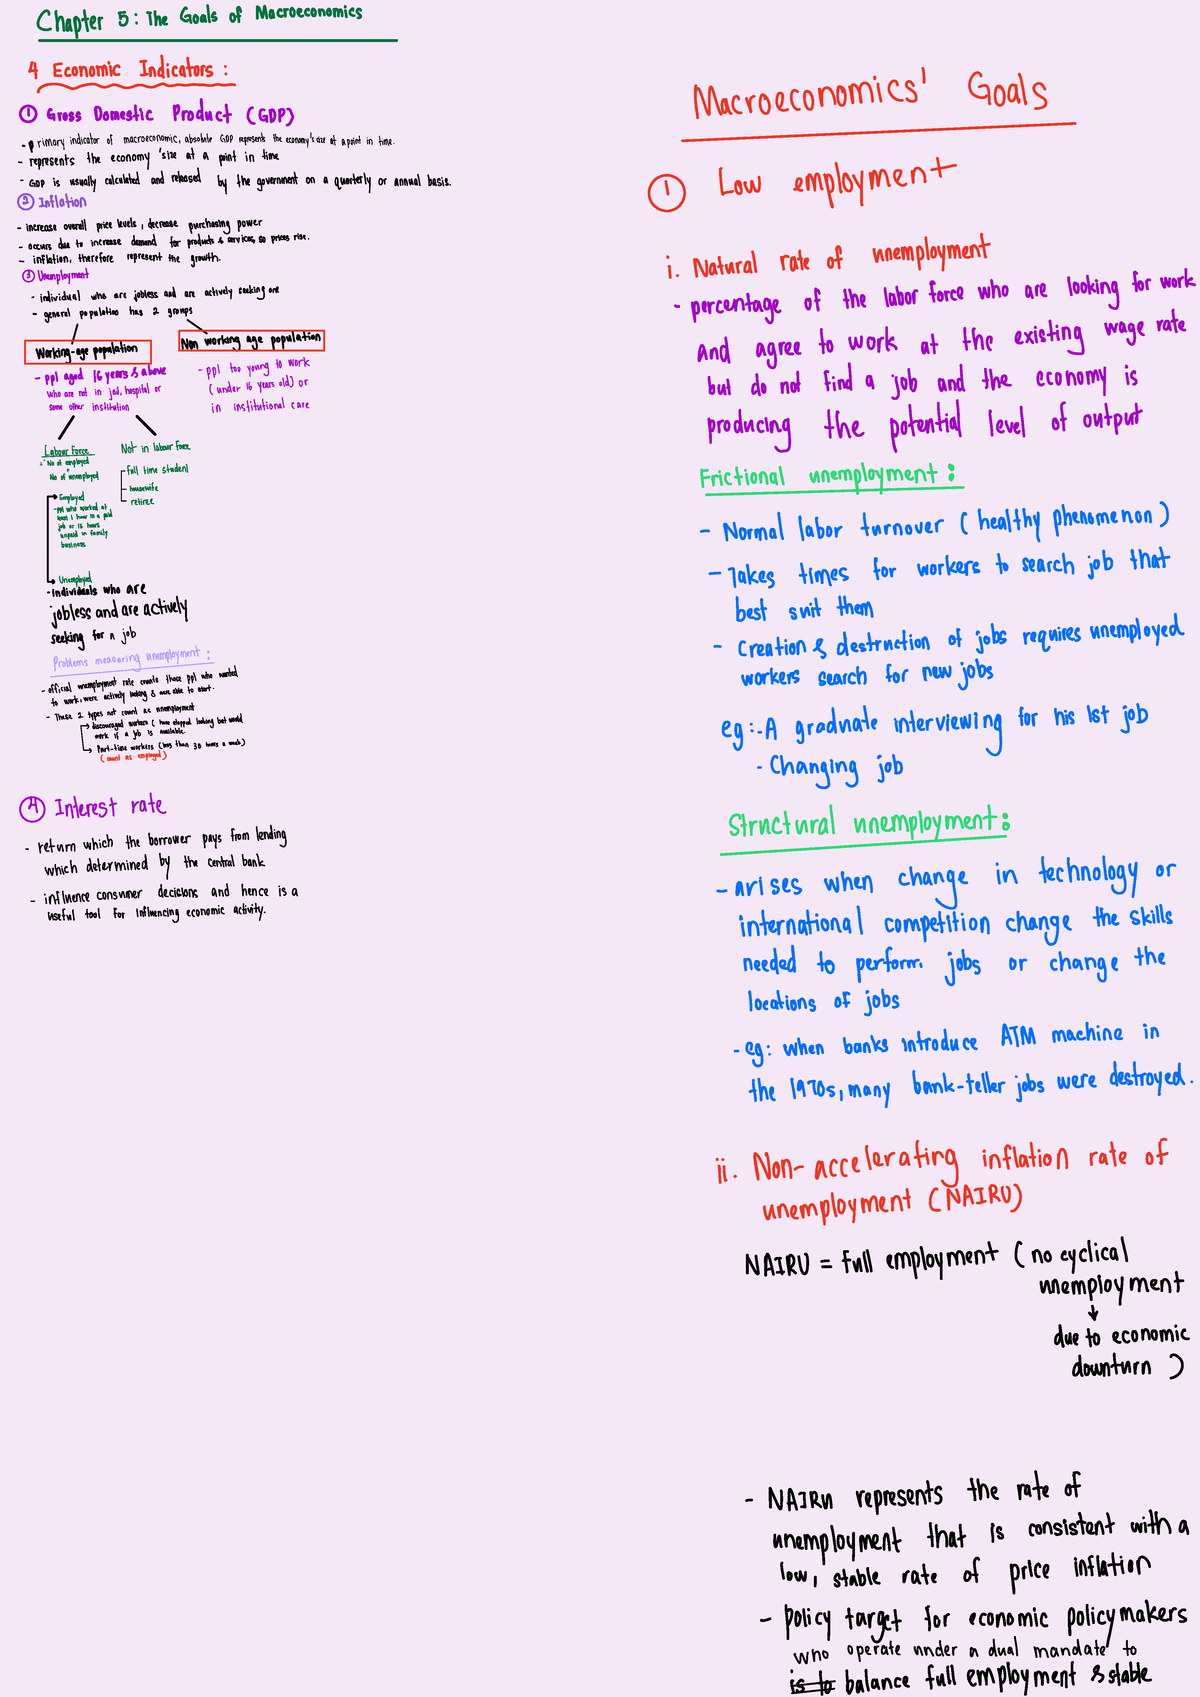 Chapter 5: The Goals of Macroeconomics
4 Economic Indicators:
① Gross Domestic Product (GDP)
- primary indicator of macroeconomic, absolute GDP represents the economy's size at a point in time.
- represents the economy 'size at a point in time
- GDP is usually calculated and released by the government on a quarterly or annual basis.
② Inflation
- increase overall price levels, decrease purchasing power
- occurs due to increase demand for products & services, so prices rise.
- inflation, therefore represent the growth.
③ Unemployment
- individual who are jobless and are actively seeking one
- general population has 2 groups
Working-age population
- ppl aged 16 years & above
who are not in jail, hospital or
some other institution
Non working age population
- ppl too young to work
(under 16 years old) or
in institutional care
Labour Force
= No of employed
+
No of unemployed
Not in labour force
- full time student
- housewife
- retiree
Employed
- ppl who worked at
least 1 hour in a paid
job or 15 hours
unpaid in family
business
Unemployed
- Individuals who are
jobless and are actively
seeking for a job
Problems measuring unemployment:
- official unemployment rate counts those ppl who wanted
to work, were actively looking & were able to start.
- These 2 types not count as unemployment
→ discouraged workers (have stopped looking but would
work if a job is available
→ Part-time workers (less than 30 hours a week)
(count as employed)
④ Interest rate
- return which the borrower pays from lending
which determined by the central bank
- influence consumer decisions and hence is a
useful tool for influencing economic activity.
Macroeconomics' Goals
① Low employment
i. Natural rate of unemployment
- percentage of the labor force who are looking for work
and agree to work at the existing wage rate
but do not find a job and the economy is
producing the potential level of output
Frictional unemployment:
- Normal labor turnover (healthy phenomenon)
- Takes times for workers to search job that
best suit them
- Creation & destruction of jobs requires unemployed
workers search for new jobs
eg:- A graduate interviewing for his 1st job
- Changing job
Structural unemployment:
- arises when change in technology or
international competition change the skills
needed to perform jobs or change the
locations of jobs
- eg: when banks introduce ATM machine in
the 1970s, many bank-teller jobs were destroyed.
ii. Non-accelerating inflation rate of
unemployment (NAIRU)
NAIRU = full employment (no cyclical
unemployment
↓
due to economic
downturn)
- NAIRU represents the rate of
unemployment that is consistent with a
low, stable rate of price inflation
- policy target for economic policymakers
who operate under a dual mandate to
is to balance full employment & stable